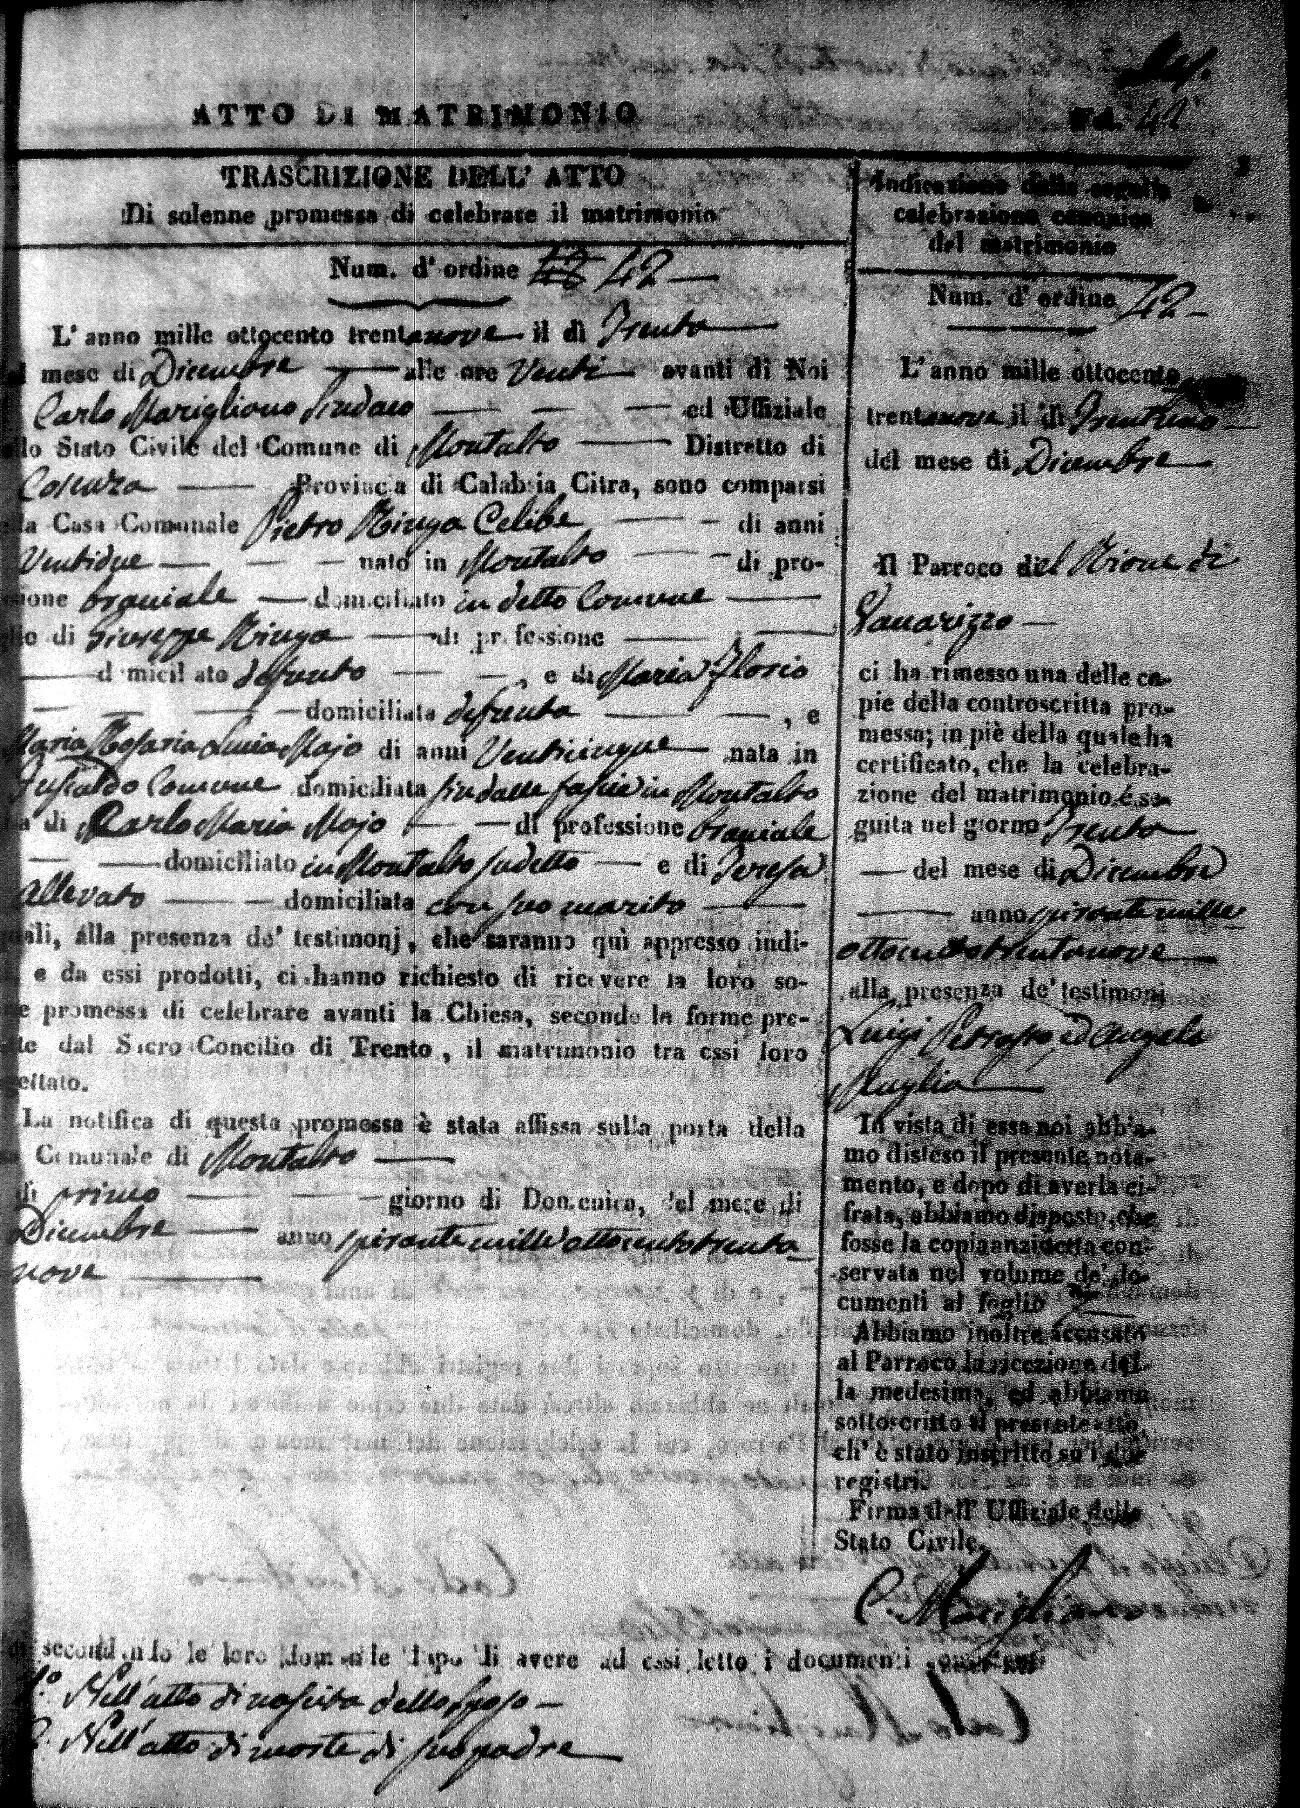 ATTO DI MATRIMONIO
42
TRASCRIZIONE DELL' ATTO
Di solenne promessa di celebrare il matrimonio
Num. d' ordine 43 42
L' anno mille ottocento trentanove il dì Trenta
mese di Dicembre alle ore Venti avanti di Noi
Carlo Marigliano Sindaco ed Uffiziale
lo Stato Civile del Comune di Montalto Distretto di
Cosenza Provincia di Calabria Citra, sono comparsi
la Casa Comunale Pietro Celibe di anni
Ventidue nato in Montalto di pro-
sione braciale domiciliato in detto Comune
glio di Giuseppe di professione
domiciliato defunto , e di Maria Florio
domiciliata defunta , e
Maria Rosaria Lucia Majo di anni Venticinque nata in
Fuscaldo Comune domiciliata sin dalle fascie in Montalto
di Carlo Maria Majo di professione braciale
domiciliato in Montalto sudetto e di Teresa
Allevato domiciliata con suo marito
quali, alla presenza de' testimonj, che saranno quì appresso indi-
e da essi prodotti, ci hanno richiesto di ricevere la loro so-
ne promessa di celebrare avanti la Chiesa, secondo le forme pre-
te dal Sacro Concilio di Trento, il matrimonio tra essi loro
gettato.
La notifica di questa promessa è stata affissa sulla porta della
Comunale di Montalto
di primo giorno di Domenica, del mese di
Dicembre anno spirante mille ottocento trenta
nove
di secondando le loro domande dopo di avere ad essi letto i documenti
1.° Nell' atto di nascita dello sposo
2. Nell' atto di morte di suo padre
Indicazione della seguita
celebrazione canonica
del matrimonio
Num. d' ordine 42
L' anno mille ottocento
trentanove il dì Trentuno
del mese di Dicembre
Il Parroco del Rione di
Vaccarizzo
ci ha rimesso una delle co-
pie della controscritta pro-
messa; in piè della quale ha
certificato, che la celebra-
zione del matrimonio è se-
guita nel giorno Trenta
del mese di Dicembre
anno spirante mille
ottocento trentanove
alla presenza de' testimonj
Luigi ed Angelo
Muglia
In vista di essa noi abbia-
mo disteso il presente nota-
mento, e dopo di averla ci-
frata, abbiamo disposto, che
fosse la copia anzidetta con-
servata nel volume de' do-
cumenti al foglio
Abbiamo inoltre accusato
al Parroco la ricezione del-
la medesima, ed abbiamo
sottoscritto il presente atto,
ch' è stato inscritto su' i due
registri.
Firma dell' Uffiziale dello
Stato Civile.
C. Marigliano